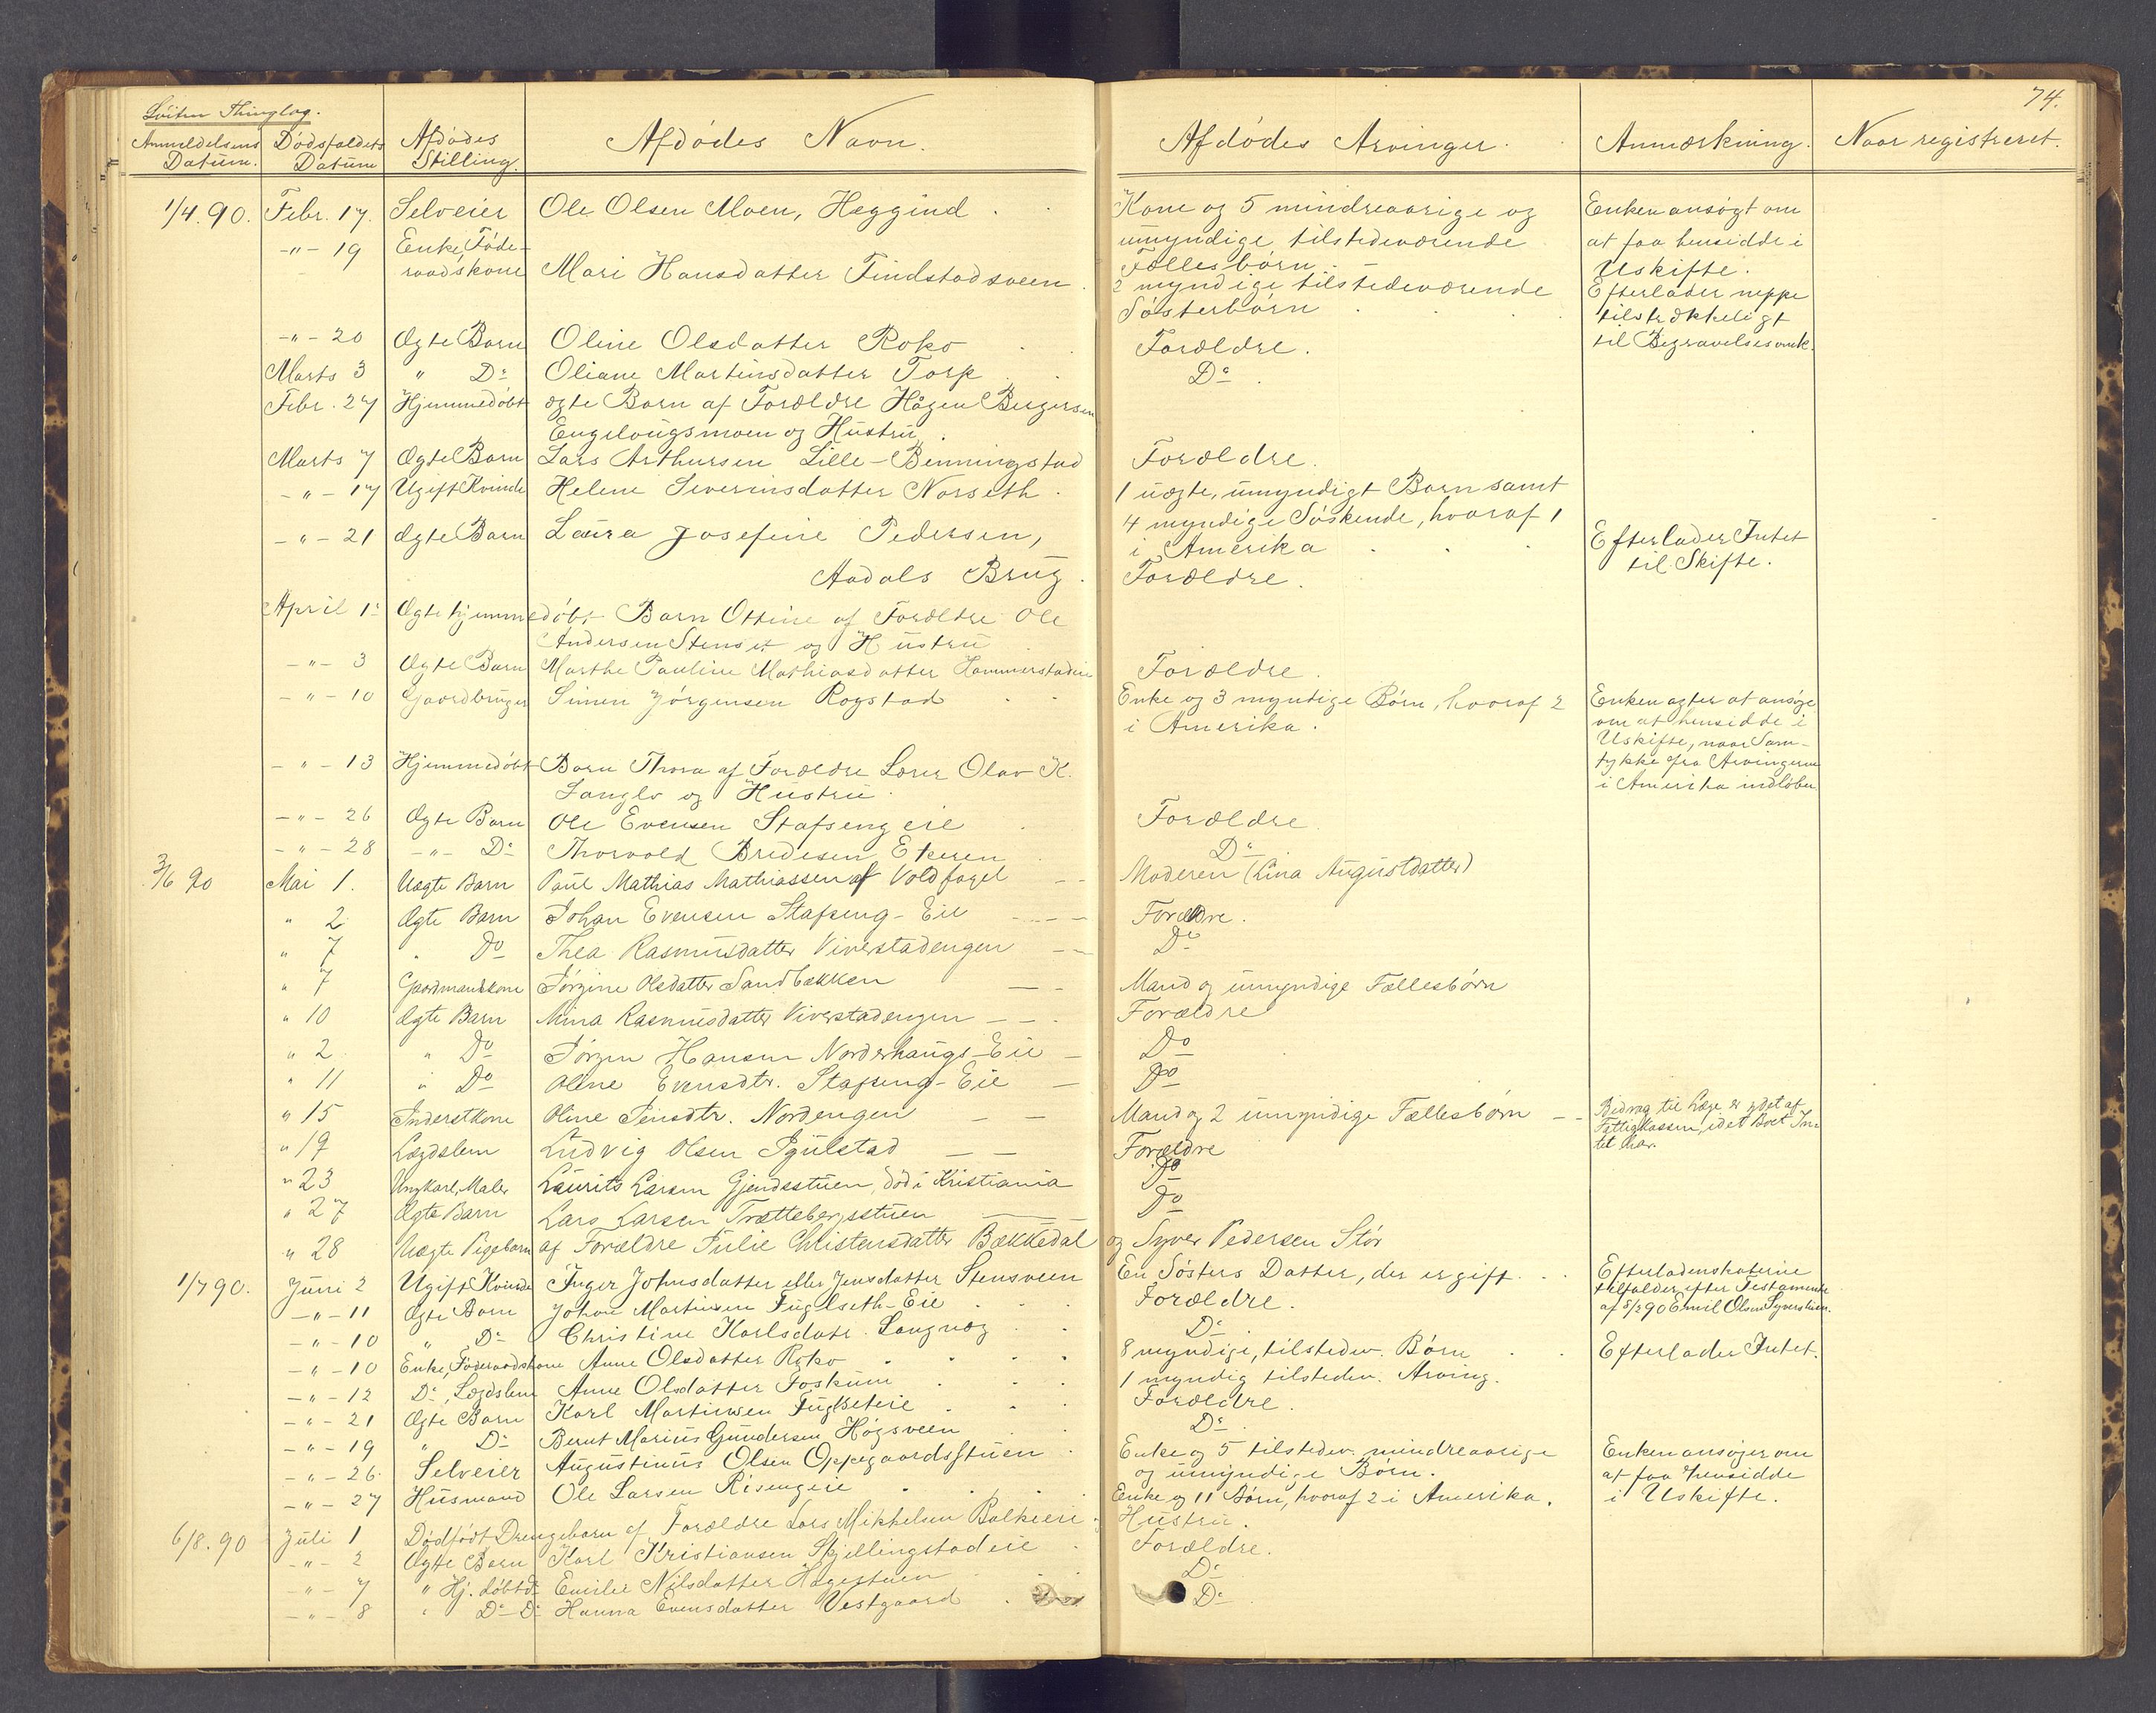 74.
Löiten Thinglag.
Anmeldelsens Datum. Dödsfaldets Datum Afdödes Stilling. Afdödes Navn. Afdödes Arvinger. Anmærkning. Naar registreret.
1/4.90. Febr. 17. Selveier Ole Olsen Moen, Heggind Kone og 5 mindreaarige og Enken ansögt om
umyndige tilstedeværende at faa hensidde i
Fællesbörn Uskifte.
-"- 19 Enke, Föde-
raadskone Mari Hansdatter Findstadsveen 2 myndige tilstedeværende Efterlader neppe
Sösterbörn tilstrækkeligt
til Begravelsesomk.
-"- 20 Ægte Barn Oline Olsdatter Roko Forældre.
Marts 3 " Do Oliane Martinsdatter Torp Do
Febr. 27 Hjemmedöbt ægte Barn af Forældre Hågen Birgersen
Engelaugsmoen og Hustru.
Marts 7 Ægte Barn Lars Arthursen Lille-Benningstad Forældre.
-"- 17 Ugift Kvinde Helene Severinsdatter Norseth. 1 uægte, umyndigt Barn samt
4 myndige Söskende, hvoraf 1
i Amerika Efterlader Intet
til Skifte.
-"- 21 Ægte Barn Laura Josefine Pedersen,
Aadals Brug. Forældre.
April 1 Ægte hjemmedöbt Barn Ottine af Forældre Ole
Andersen Stenset og Hustru
-"- 3 Ægte Barn Marthe Pauline Mathiasdatter Hammerstadeie Forældre.
-"- 10 Gaardbruger Simen Jörgensen Rogstad Enke og 3 myndige Börn, hvoraf 2 Enken agter at ansöge
i Amerika. om at hensidde i
Uskifte, naar Sam-
tykke fra Arvingerne
i Amerika indlöber
-"- 13 Hjemmedöbt Barn Thora af Forældre Lærer Olav K.
Langlo og Hustru.
-"- 26 Ægte Barn Ole Evensen Stafseng eie Forældre
-"- 28 -"- Do Thorvald Bredesen Ekeren Do
3/6 90 Mai 1. Uægte Barn Paul Mathias Mathiassen af Voldfaget Moderen (Lina Augustdatter)
" 2 Ægte Barn Johan Evensen Stafseng-Eie Forældre.
" 7 " Do Thea Rasmusdatter Viverstadengen Do
" 7 Gaardmandskone Jörgine Olsdatter Sandbækken Mand og umyndige Fællesbörn
" 10 Ægte Barn Mina Rasmusdatter Viverstadengen Forældre
" 2 " Do Jörgen Hansen Norderhaugs-Eie Do
" 11 " Do Oline Evensdtr. Stafseng-Eie Do
" 15 Inderstkone Oline Jensdtr. Nordengen Mand og 2 umyndige Fællesbörn Bidrag til Læge er ydet af
Fattigkassen, idet Boet In-
tet har.
" 19 Lægdslem Ludvig Olsen Igulstad Forældre
" 23 Ungkarl, Maler Laurits Larsen Gjendsstuen, död i Kristiania Do
" 27 Ægte Barn Lars Larsen Trættebergsstuen Do
" 28 Uægte Pigebarn af Forældre Julie Christensdatter Bækkedal og Syver Pedersen Stör
1/7 90. Juni 2 Ugift Kvinde Inger Johnsdatter eller Jensdatter Stensveen En Sösters Datter, der er gift. Efterladenskaberne
tilfalder efter Testamente
af 5/2 90 Emil Olsen Syverstuen.
-"- 11 Ægte Barn Johan Martinsen Fuglseth-Eie Forældre.
-"- 10 " Do Christine Karlsdatr. Langnæg Do
-"- 10 Enke, Föderaadskone Anne Olsdatter Roko 8 myndige, tilstedev. Börn Efterlader Intet.
-"- 12 Do, Lægdslem Anne Olsdatter Foskum 1 myndig tilstedev. Arving.
-"- 21 Ægte Barn Karl Martinsen Fuglseteie Forældre.
-"- 19 " Do Bernt Marius Gundersen Högsveen Do
-"- 26 Selveier Augustinus Olsen Oppegaardsstuen Enke og 5 tilstedev. mindreaarige Enken ansöger om
og umyndige Börn. at faa hensidde
i Uskifte.
-"- 27 Husmand Ole Larsen Risengeie Enke og 11 Börn, hvoraf 2 i Amerika.
6/8.90 Juli 1 Dödfödt Drengebarn af Forældre Lars Mikkelsen Balkeeie og Hustru.
-"- 2 Ægte Barn Karl Kristiansen Skjellingstadeie Forældre.
-"- 7 " Hj. döbt do Emilie Nilsdatter Hagestuen Do
-"- 8 " Do Do Hanna Evensdatter Vestgaard Do